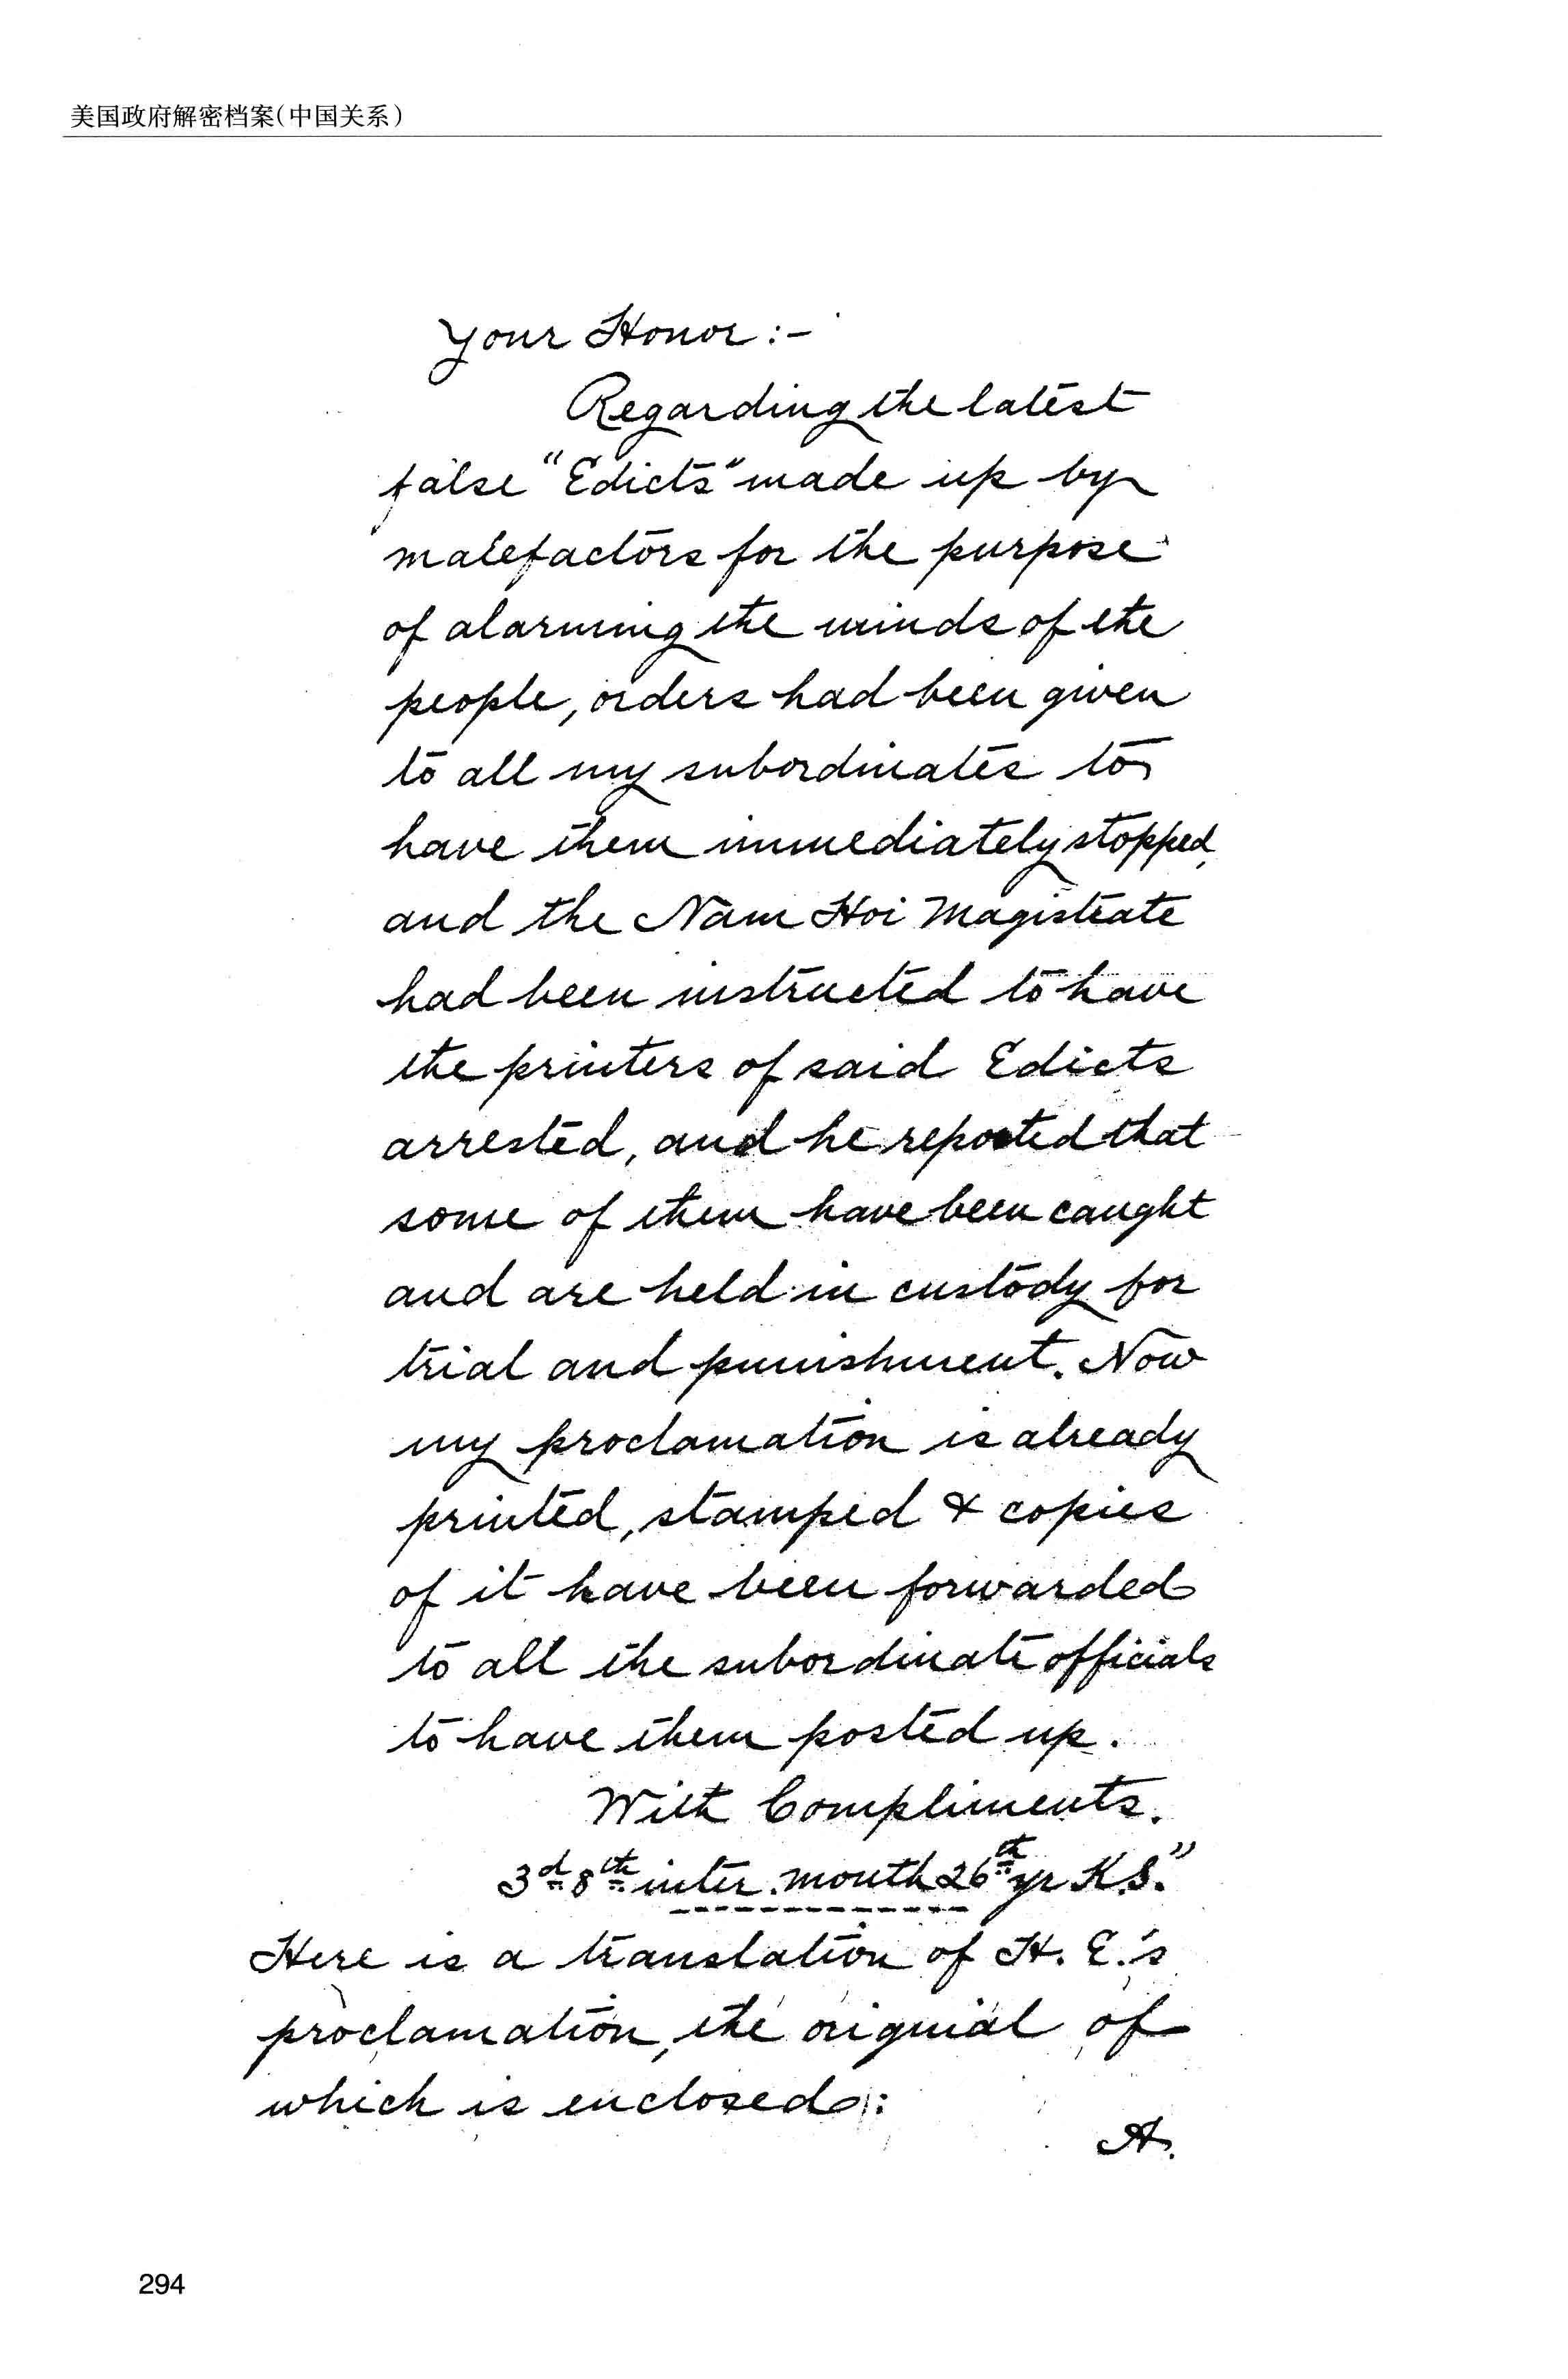 美国政府解密档案(中国关系)
Your Honor:-
Regarding the latest
false "Edicts" made up by
malefactors for the purpose
of alarming the minds of the
people, orders had been given
to all my subordinates to
have them immediately stopped,
and the Nam Hoi Magistrate
had been instructed to have
the printers of said Edicts
arrested, and he reported that
some of them have been caught
and are held in custody for
trial and punishment. Now
my proclamation is already
printed, stamped & copies
of it have been forwarded
to all the subordinate officials
to have them posted up.
With Compliments.
3d 8th inter. month 26th yr K.S."
Here is a translation of H. E.'s
proclamation, the original of
which is enclosed:
A.
294